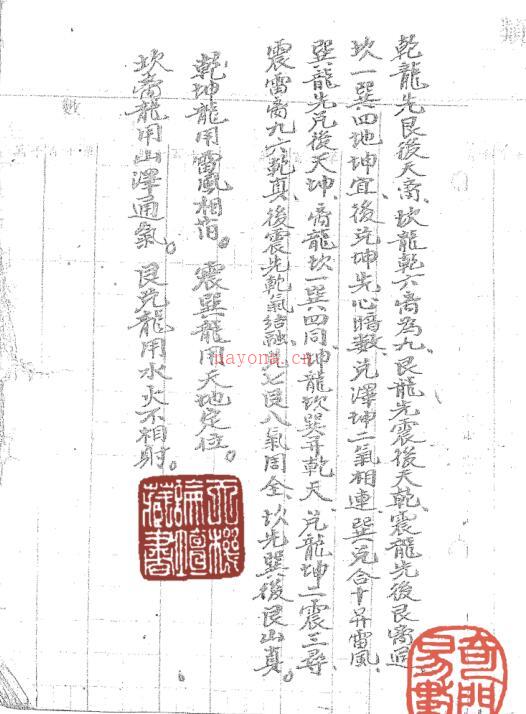 類
數
乾龍先艮後天离、坎龍乾六离為九、艮龍先震後天乾、震龍先後艮离
坎一巽四地坤宜、後兌坤先心暗数、兌澤坤二氣相連、巽兌合十昇雷風、
巽龍先兌後天坤、离龍坎一巽四同、坤龍坎巽昇乾天、兌龍坤二震三尋、
震雷离九六乾真、後震先乾氣結融、七艮八氣周全、坎先巽後艮山真。
乾坤龍用雷風相。震巽龍用天地定位。
坎离龍用山澤通氣。艮兌龍用水火不相射。
nayona.cn
天機論壇藏書
奇門易